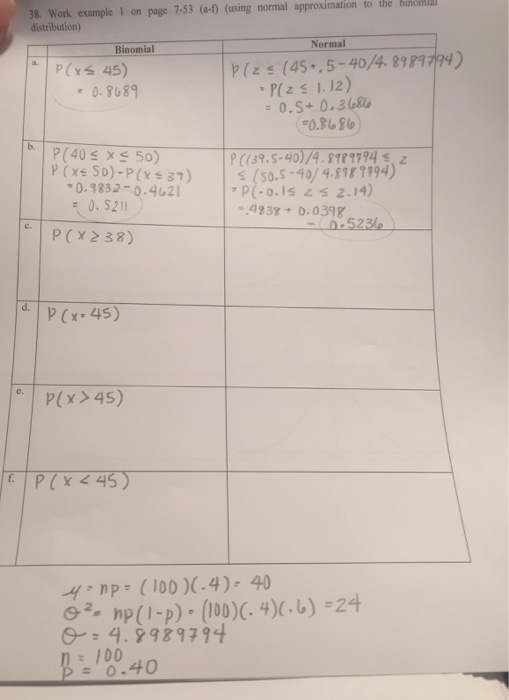 38. Work example 1 on page 7-53 (a-f) (using normal approximation to the binomial
distribution)
Binomial
Normal
a.
P(x ≤ 45)
= 0.8689
P(z ≤ (45+.5-40/4.8989794)
= P(z ≤ 1.12)
= 0.5+0.3686
=0.8686
b.
P(40 ≤ x ≤ 50)
P(x ≤ 50)-P(x ≤ 39)
=0.9832-0.4621
= 0.5211
P((39.5-40)/4.8989794 ≤ z
≤ (50.5-40/4.8989794)
=P(-0.1 ≤ z ≤ 2.14)
=.4838 + 0.0398
= 0.5236
c.
P(x ≥ 38)
d.
P(x=45)
e.
P(x>45)
f.
P(x < 45)
μ = np = (100)(.4) = 40
σ²= np(1-p) = (100)(.4)(.6) =24
σ = 4.8989794
n = 100
p = 0.40